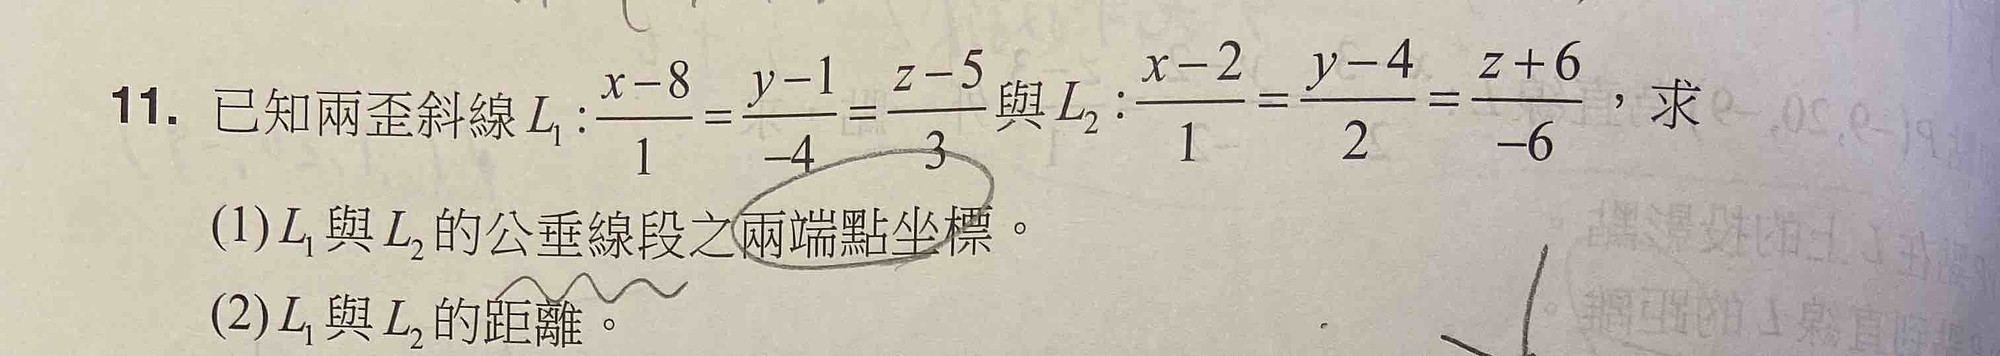 11. 已知兩歪斜線 L₁ : (x−8)/1 = (y−1)/−4 = (z−5)/3 與 L₂ : (x−2)/1 = (y−4)/2 = (z+6)/−6，求
(1) L₁ 與 L₂ 的公垂線段之兩端點坐標。
(2) L₁ 與 L₂ 的距離。